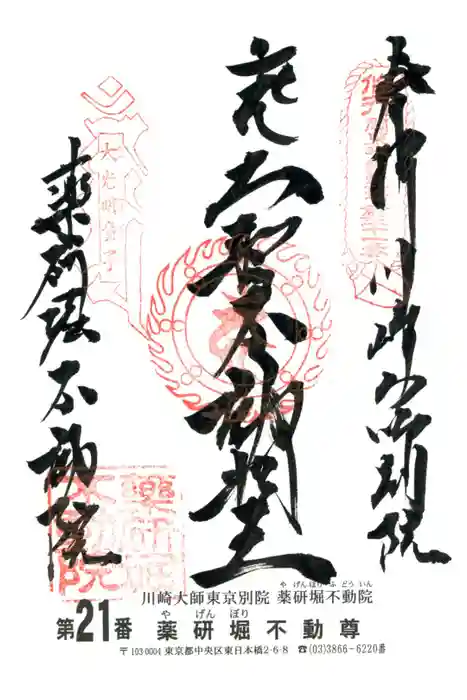 奉拝 川崎大師別院
大聖不動明王
薬研堀不動院
薬研堀不動院
や げんぼり ふ どう いん
川崎大師東京別院 薬研堀不動院
や げん ぼり
第21番 薬研堀不動尊
〒103-0004 東京都中央区東日本橋2-6-8 ☎(03)3866-6220番